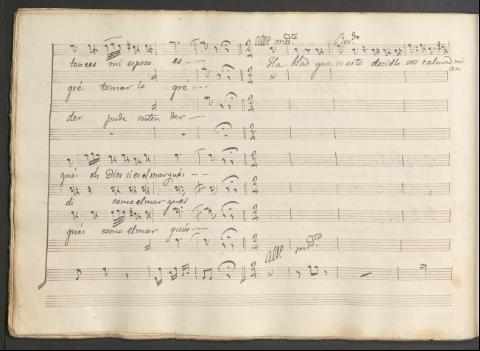 All.º mod.to Rec.do
tonces mi esposo es --- Ha blad que es esto decidlo vos calmad mi
an
gré temor lo gré ---
der pude enten der —
qués oh Dios si es el mar qués ---
di como el mar ques
qués como el mar qués ---
All.º mod.to